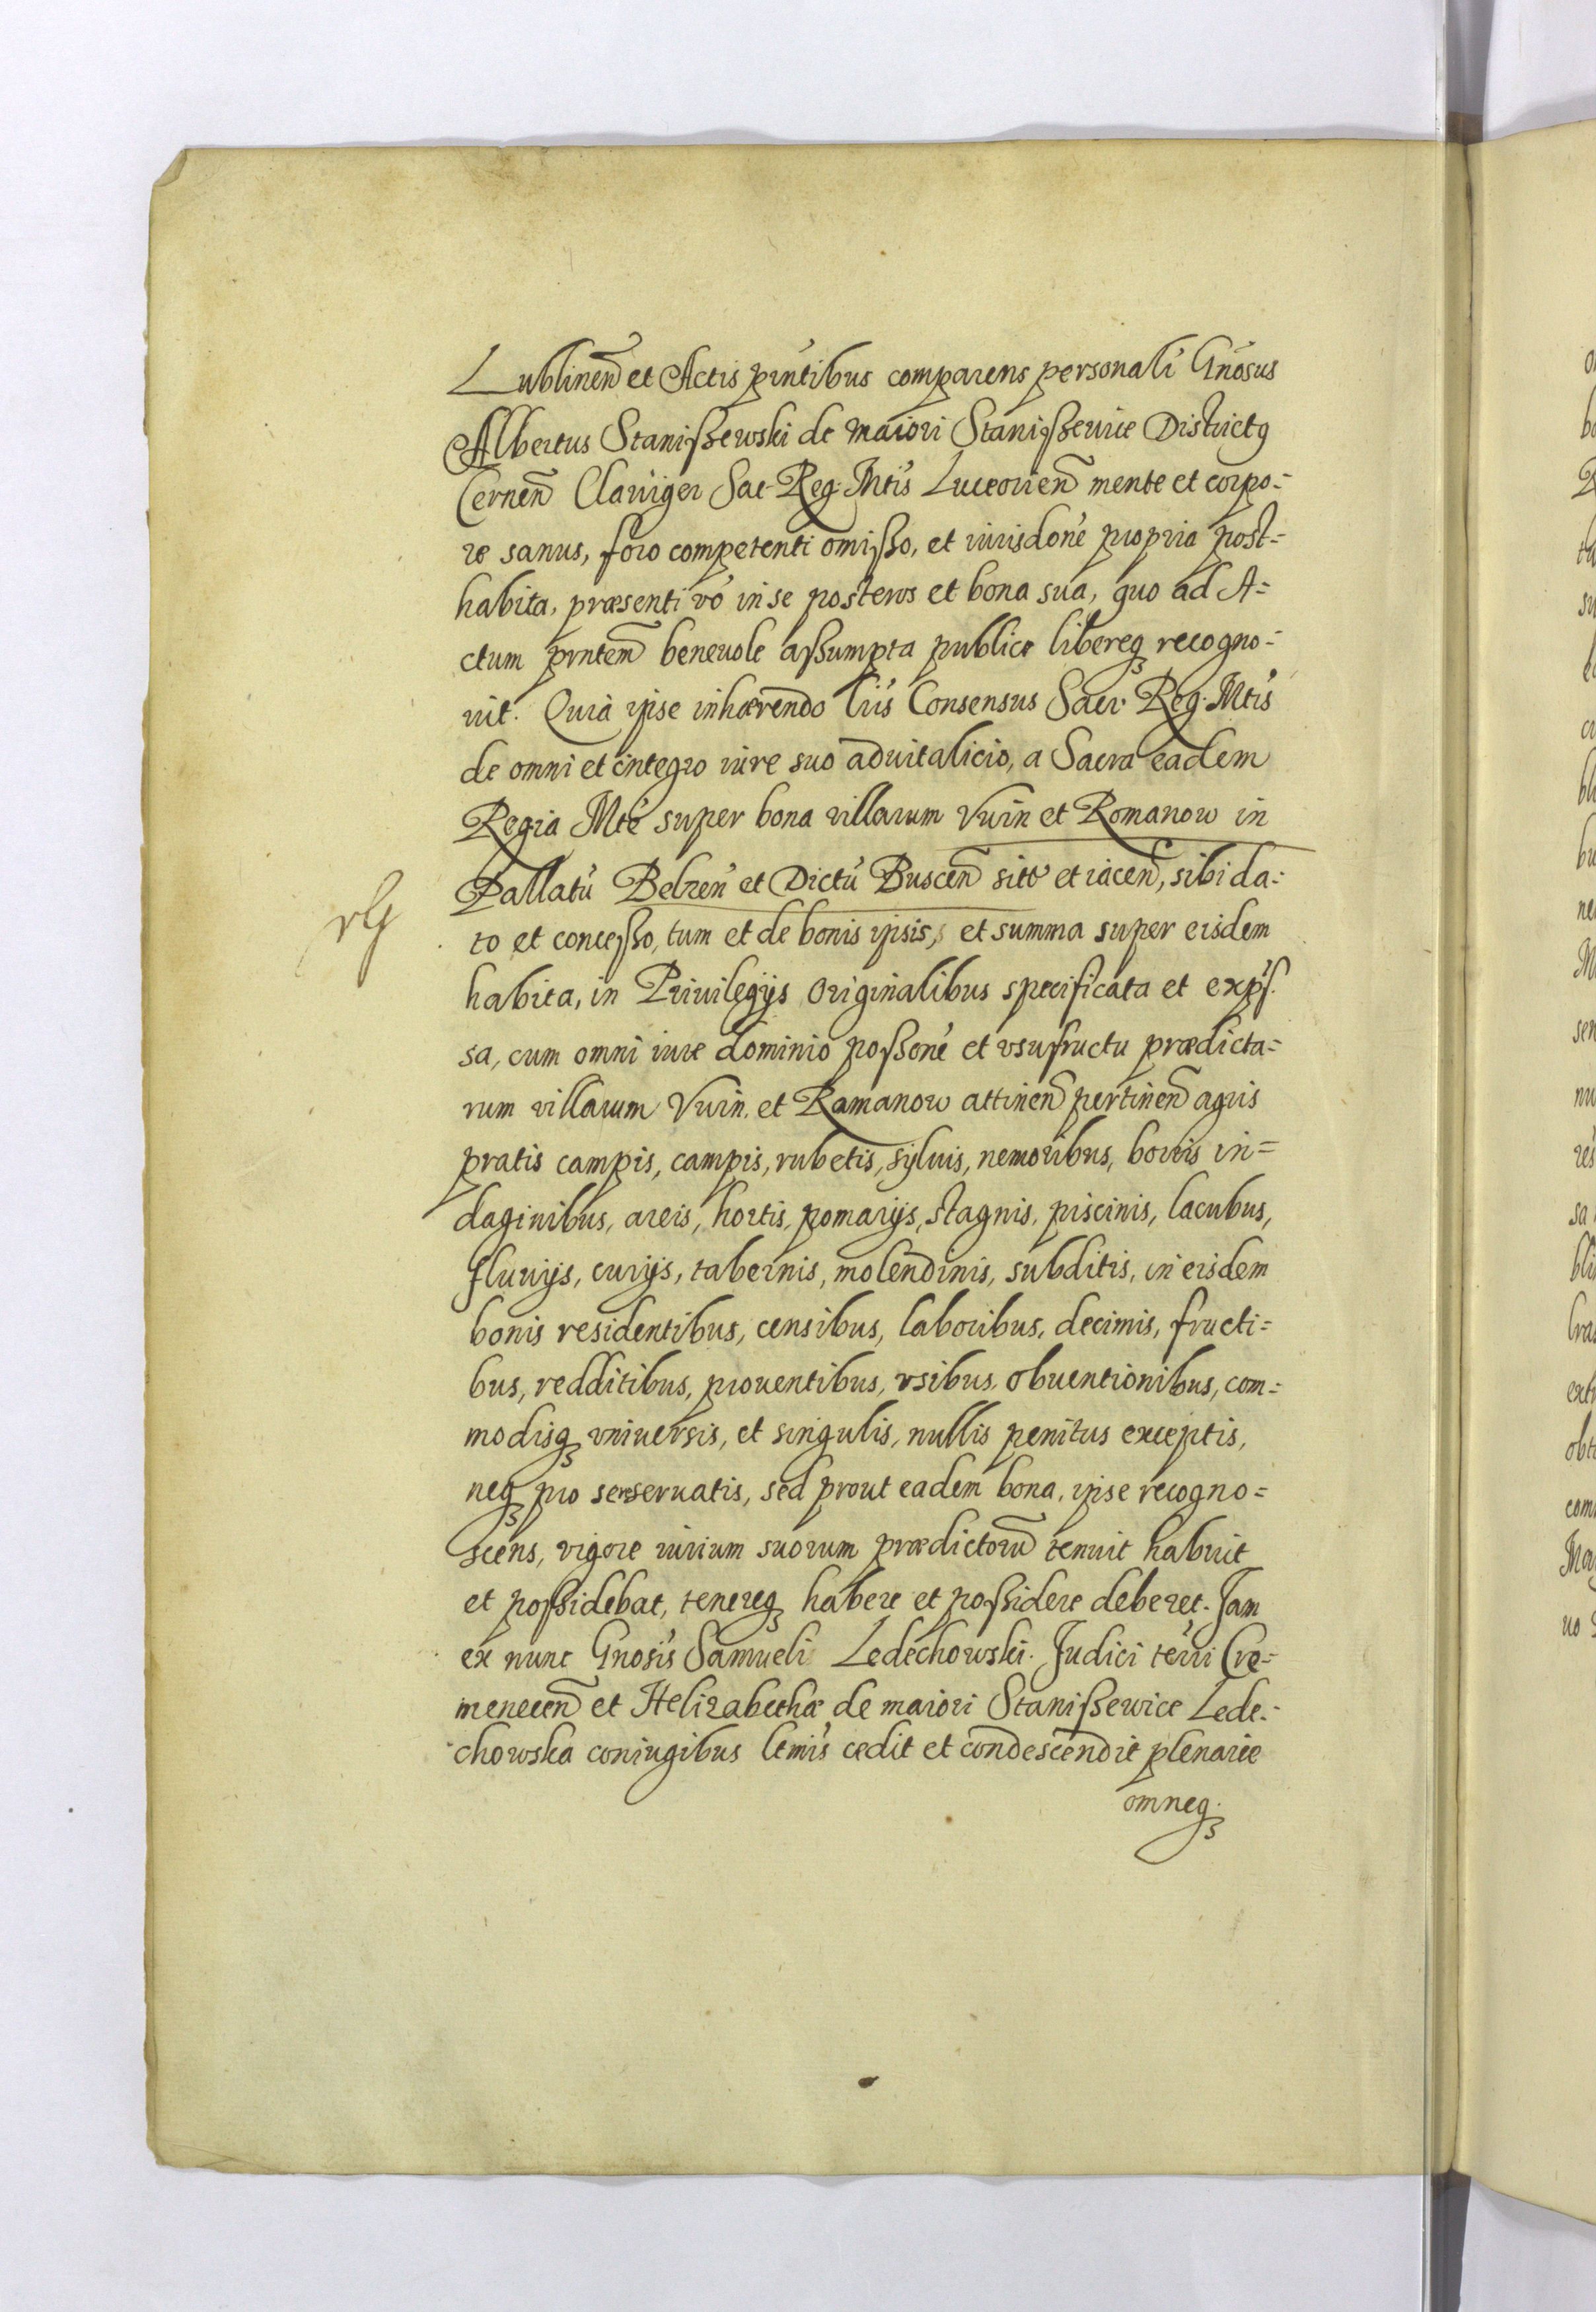 Lublinen̄ et Actis pn̄tibus comparens personali Gn̄osus
Albertus Staniszewski de maiori Staniszewice Districtq
Cernen̄ Clauiger Sac. Reg. Mtis Luceorien̄ mente et corpo=
re sanus, foro competenti omisso, et iurisdone propria post=
habita, præsenti vo in se posteros et bona sua, quo ad A=
ctum pn̄tem benevole assumpta publice libereq recogno=
uit. Quia ipse inhærendo lris Consensus Sacr. Reg. Mtis
de omni et integro iure suo aduitalicio, a Sacra eadem
Regia Mte super bona villarum Vuin et Romanow in
Pallatu Belzen̄ et Dictu Buscen̄ sitt et iacen̄, sibi da=
vG
to et concesso, tum et de bonis ipsis, et summa super eisdem
habita, in Priuilegijs Originalibus specificata et expſ.
sa, cum omni iure dominio possone et vsufructu prædicta=
rum villarum Vuin, et Ramanow attinen̄ pertinen̄ agris
pratis campis, campis, rubetis, syluis, nemoribus, borris in=
daginibus, areis, hortis, pomarijs, stagnis, piscinis, lacubus,
fluuijs, curijs, tabernis, molendinis, subditis, in eisdem
bonis residentibus, censibus, laboribus, decimis, fructi=
bus, redditibus, prouentibus, vsibus, obuentionibus, com=
modisq vniuersis, et singulis, nullis penitus exceptis,
neq pro se reseruatis, sed prout eadem bona, ipse recogno=
scens, vigore iurium suorum prædictorū tenuit habuit
et possidebat, tenereq habere et possidere deberet. Jam
ex nunc Gnosis Samueli Ledechowski. Judici terri Cre=
menecen̄ et Helizabethæ de maiori Staniszewice Lede=
chowska coniugibus ltmis cedit et condescendit plenarie
omneq